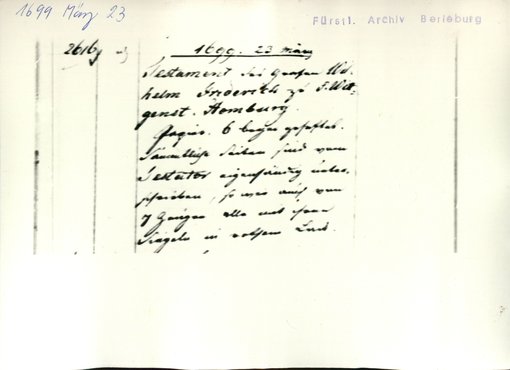 1699 März 23
Fürstl. Archiv Berleburg
2616
1699. 23 März
Testament des Grafen Wil-
helm Friderich zu S. Witt-
genst. Homburg.
Papier. 6 bogen geheftet.
Sämmtliche Seiten sind vom
Testator eigenhändig unter-
schrieben, so wie auch von
7 Zeugen alle mit ihren
Siegeln in rothem Lack.